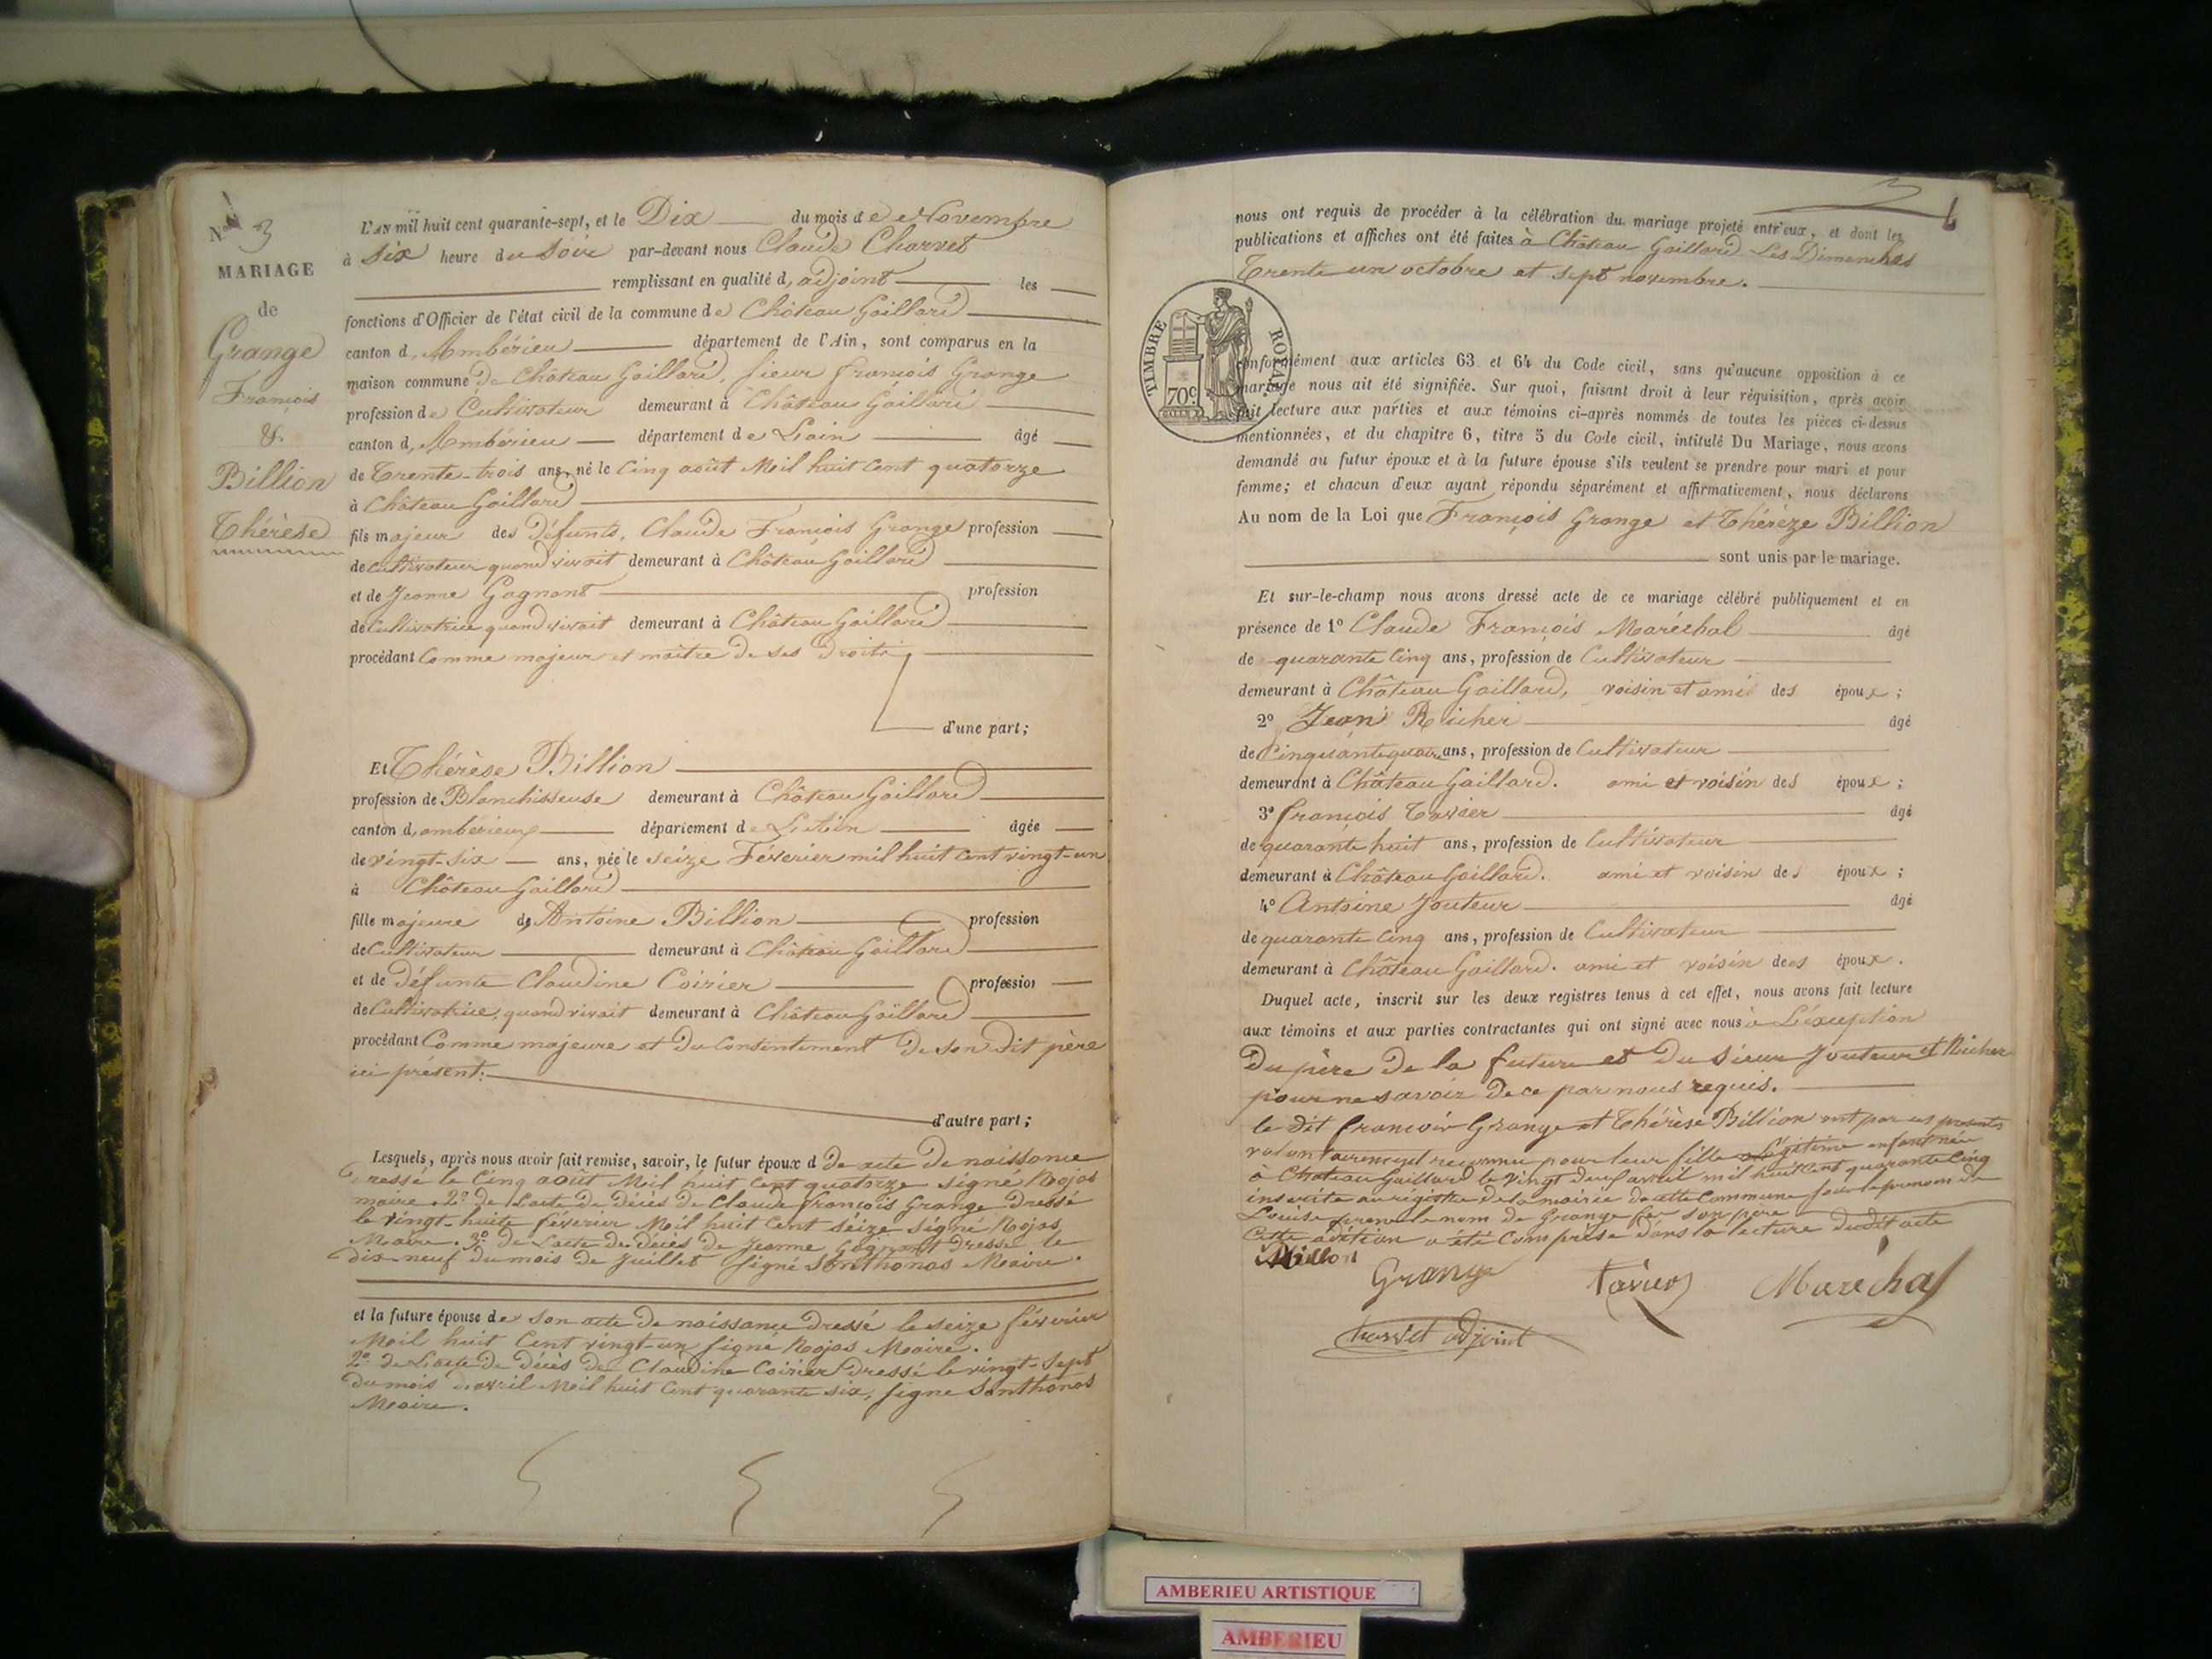 N° 3
MARIAGE
de
Grange
François
&
Billion
Thérèse
L'AN mil huit cent quarante-sept, et le Dix du mois de Novembre
à six heure du soir par-devant nous Claude Charvet
remplissant en qualité d'adjoint les
fonctions d'Officier de l'état civil de la commune de Château Gaillard
canton d'Ambérieu département de l'Ain, sont comparus en la
maison commune de Château Gaillard, sieur françois Grange
profession de Cultivateur demeurant à Château Gaillard
canton d'Ambérieu département de Lain âgé
de Trente-trois ans, né le cinq août Mil huit cent quatorze
à Château Gaillard
fils majeur des Défunts, Claude François Grange profession
de cultivateur quand vivait demeurant à Château Gaillard
et de Jeanne Gagnant profession
de Cultivatrice quand vivait demeurant à Château Gaillard
procédant Comme majeur et maître de ses droits
d'une part;
Et Thérèse Billion
profession de Blanchisseuse demeurant à Château Gaillard
canton d'ambérieux département de L'Ain âgée
de vingt-six ans, née le seize Février mil huit cent vingt-un
à Château Gaillard
fille majeure de Antoine Billion profession
de Cultivateur demeurant à Château Gaillard
et de défunte Claudine Coirier profession
de Cultivatrice, quand vivait demeurant à Château Gaillard
procédant Comme majeure et du consentement de son dit père
ici présent.
d'autre part;
Lesquels, après nous avoir fait remise, savoir, le futur époux d de acte de naissance
dressé le cinq août Mil huit cent quatorze signé Rojas
maire. 2° de l'acte de décès de Claude françois Grange dressé
le vingt-huite février Mil huit cent seize signé Rojas,
Maire. 3° de l'acte de décès de Jeanne Gagnant dressé le
dix-neuf du mois de Juillet signé Santhonas Maire.
et la future épouse de son acte de naissance dressé le seize février
Mil huit cent vingt-un signé Rojas Maire.
2° de L'acte de décès de Claudine Coirier dressé le vingt-sept
du mois d'avril Mil huit cent quarante six, signé Santhonas
Maire.
nous ont requis de procéder à la célébration du mariage projeté entr'eux, et dont les
publications et affiches ont été faites à Château Gaillard Les Dimanches
Trente un octobre et sept novembre.
TIMBRE ROYAL
70c
conformément aux articles 63 et 64 du Code civil, sans qu'aucune opposition à ce
mariage nous ait été signifiée. Sur quoi, faisant droit à leur réquisition, après avoir
fait lecture aux parties et aux témoins ci-après nommés de toutes les pièces ci-dessus
mentionnées, et du chapitre 6, titre 5 du Code civil, intitulé Du Mariage, nous avons
demandé au futur époux et à la future épouse s'ils veulent se prendre pour mari et pour
femme; et chacun d'eux ayant répondu séparément et affirmativement, nous déclarons
Au nom de la Loi que François Grange et Thérèze Billion
sont unis par le mariage.
Et sur-le-champ nous avons dressé acte de ce mariage célébré publiquement et en
présence de 1° Claude François Maréchal âgé
de quarante cinq ans, profession de Cultivateur
demeurant à Château Gaillard, voisin et ami des époux;
2° Jean Richer âgé
de Cinquante quatre ans, profession de Cultivateur
demeurant à Château Gaillard. ami et voisin des époux;
3° françois Tavier âgé
de quarante huit ans, profession de Cultivateur
demeurant à Château Gaillard. ami et voisin des époux;
4° Antoine Jouteur âgé
de quarante cinq ans, profession de Cultivateur
demeurant à Château Gaillard. ami et voisin des époux.
Duquel acte, inscrit sur les deux registres tenus à cet effet, nous avons fait lecture
aux témoins et aux parties contractantes qui ont signé avec nous à L'éxception
du père de la future et du sieur Jouteur et Richer
pour ne savoir de ce par nous requis.
le dit françois Grange et Thérèse Billion ont par ces presents
volontairement reconnu pour leur fille Légitime enfant née
à Chateau Gaillard le vingt deux avril mil huit cent quarante cinq
inscrite au registre de la mairie de cette Commune sous le prenom de
Louise le nom de Grange son père
Cette adition a été comprise dans la lecture dudit acte
Billion
Grange
Tavier
Maréchal
Charvet adjoint
AMBERIEU ARTISTIQUE
AMBERIEU